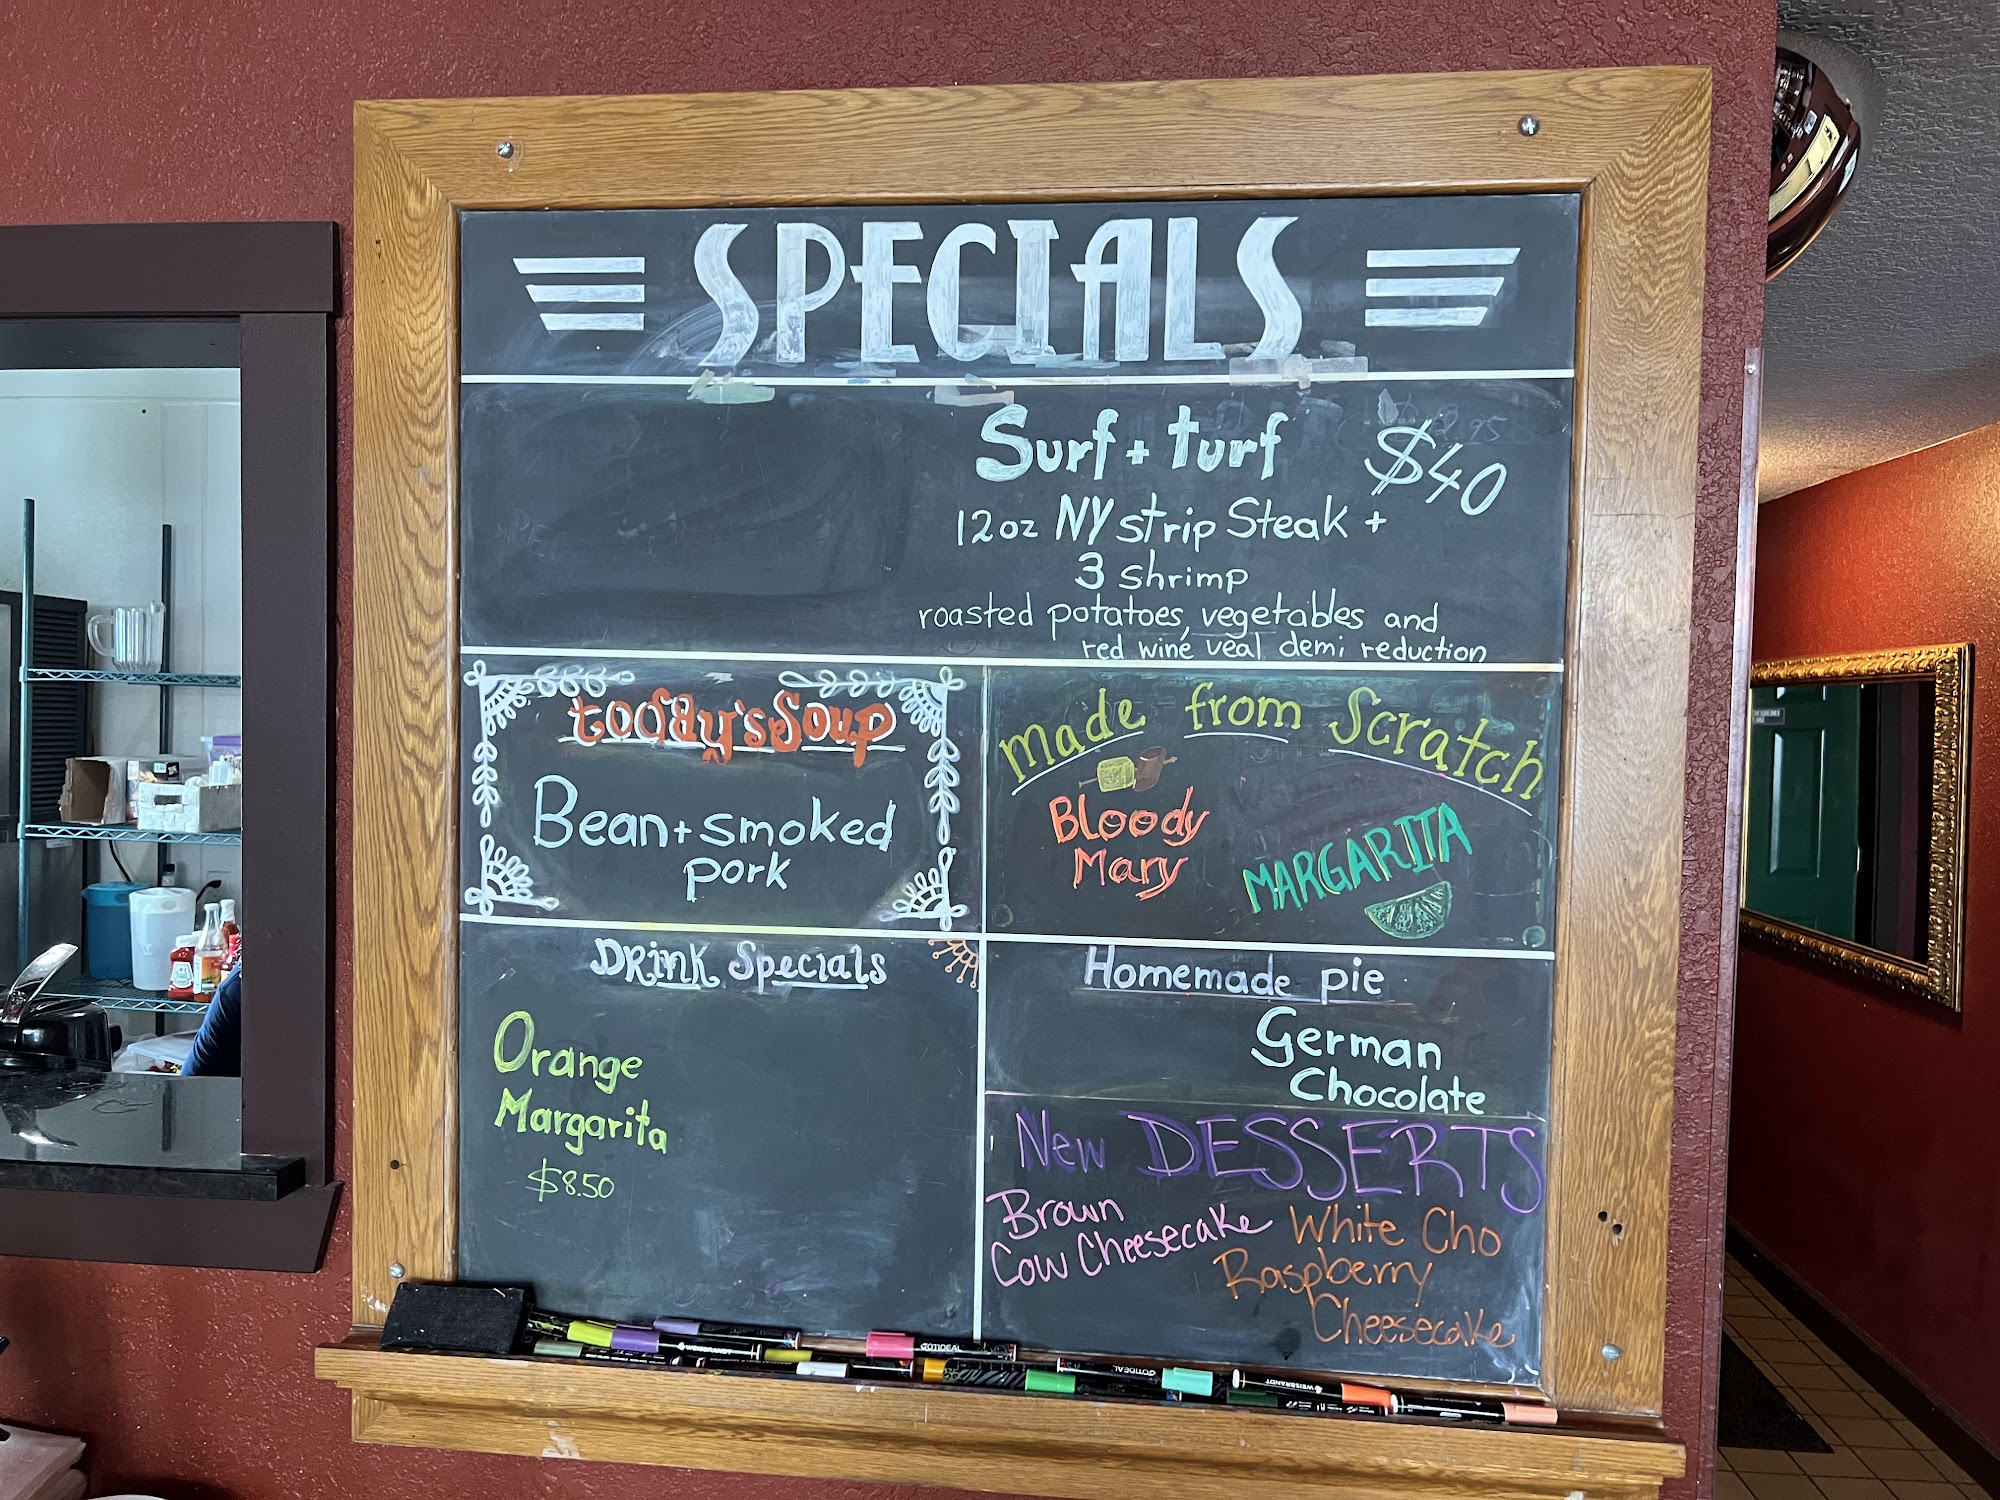 SPECIALS
Surf + turf $40
12oz NY strip Steak +
3 shrimp
roasted potatoes, vegetables and
red wine veal demi reduction
today's Soup
Bean + smoked
pork
made from Scratch
Bloody
Mary
MARGARITA
DRink Specials
Orange
Margarita
$8.50
Homemade pie
German
Chocolate
New DESSERTS
Brown
Cow Cheesecake
White Cho
Raspberry
Cheesecake
GOTIDEAL
GOTIDEAL
WEISBRANDT
WEISBRANDT